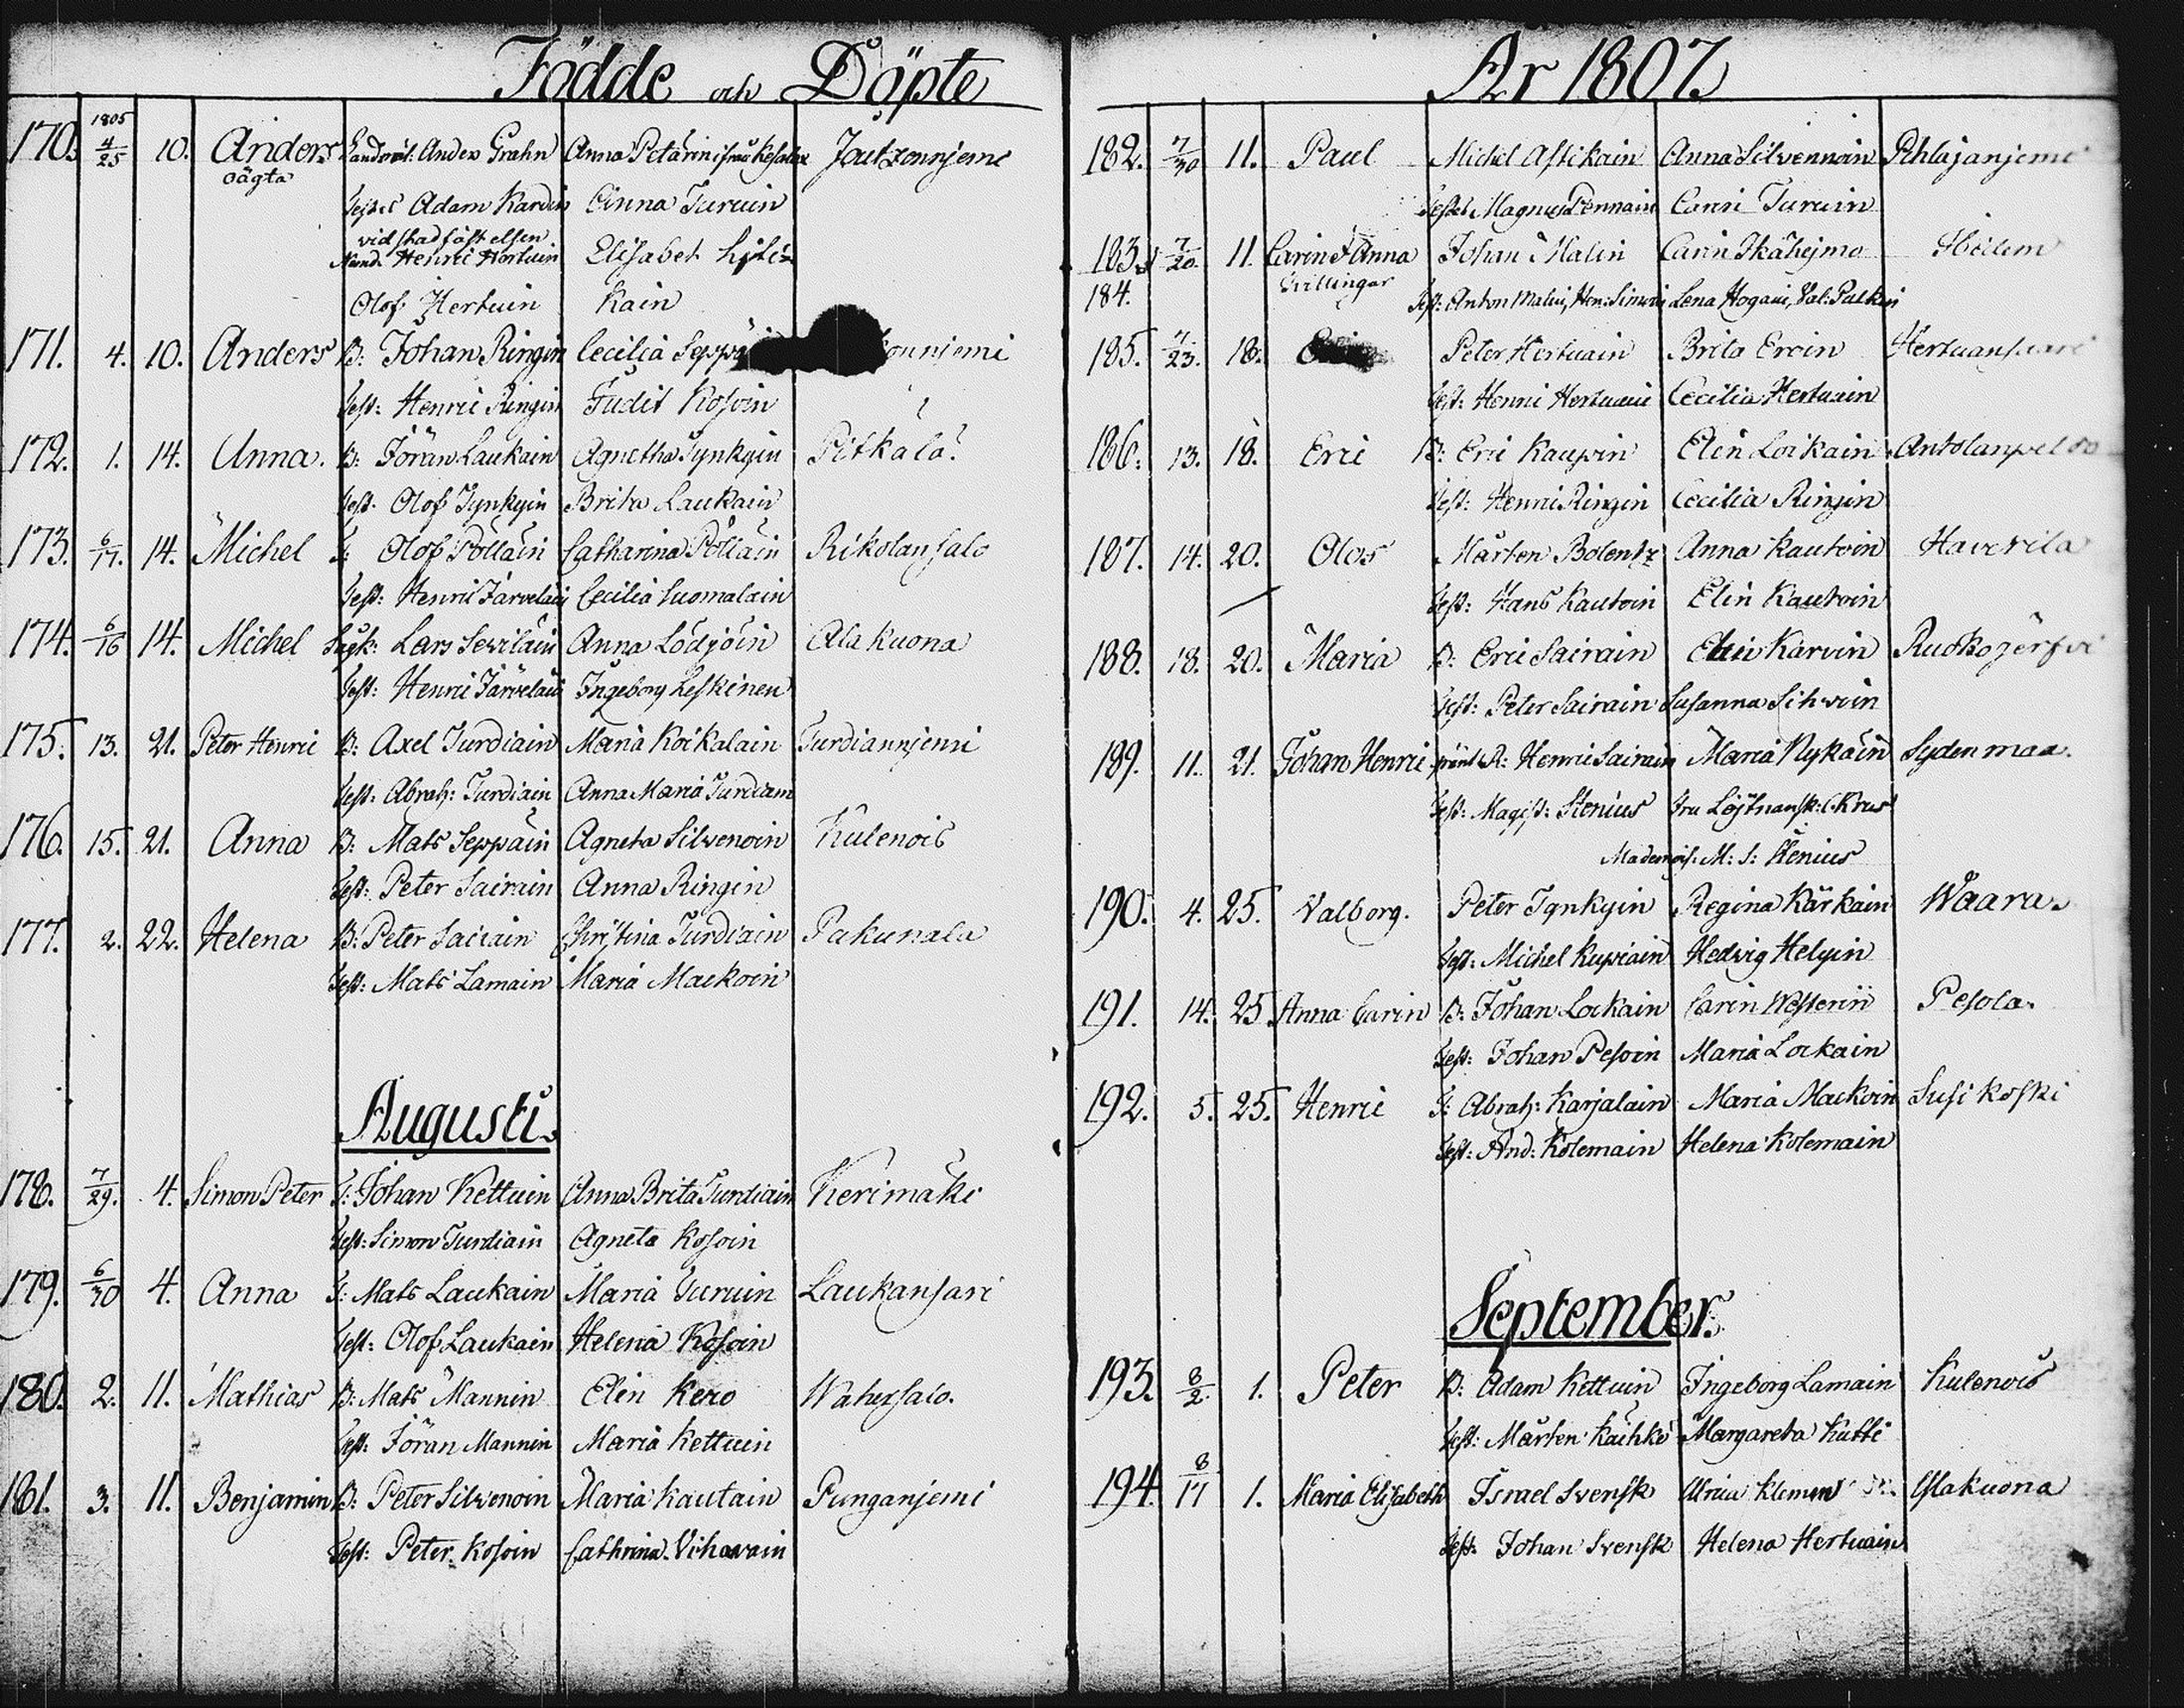 Födde och Döpte
170. 1805 4/25 10. Anders Landsvät: Anders Grahn Anna Petärin ifrån Kesälax Joutzonnjemi
oägta
Test: Adam Karvin Anna Turuin
vid stadfästelsen
Nämd. Henric Hertuin Elisabet
Olof Hertuin kain
171. 4. 10. Anders B: Johan Ringin Cecilia onnjemi
Test: Henric Ringin Judit Kosoin
172. 1. 14. Anna. B: Jöran Laukain Agnetha Tynkyin Pitkälä
Test. Olof Tynkyin Brita Laukain
173. 6/17. 14. Michel T: Olof Pölläin Catharina Pölläin Rikolansalo
Test: Henric Järveläin Cecilia Luomalain
174. 6/16 14. Michel Lars Seviläin Anna Lödjöin Ala kuona
Test: Henric Järveläin Ingeborg Leskinen
175. 13. 21. Peter Henric B: Axel Turdiain Maria Koikalain Turdiannjemi
Test: Abrah: Turdiain Anna Maria Turdiain
176. 15. 21. Anna B: Mats Seppäin Agneta Silvenoin Kulenois
Test: Peter Sairain Anna Ringin
177. 2. 22. Helena B: Peter Sairain Christina Turdiain Pakunala
Test: Mats Lamain Maria Mackoin
Augusti.
178. 7/29. 4. Simon Peter T: Johan Kettuin Anna Brita Turdiain Kerimäki
Test: Simon Turdiain Agneta Kosoin
179. 6/30 4. Anna T: Mats Laukain Maria Turuin Laukansari
Test: Olof Laukain Helena Kosoin
180. 2. 11. Mathias B: Mats Mannin Elin Kero Wahersalo.
Test: Jöran Mannin Maria Kettuin
181. 3. 11. Benjamin B: Peter Silvenoin Maria Kautain Punganjemi
Test: Peter Kosoin Cathrina Vihavain
År 1807.
182. 7/30 11. Paul Michel Astikain Anna Silvennoin Pihlajanjemi
Test: Magnus Pennain Carin Turuin
183. 7/20. 11. Carin & Anna Johan Malin Carin Ikäheimo Ibidem
184. Tvillingar Test: Anton Malin, Hen: Simoin Lena Hogain, Val: Pulkin
185. 7/23. 18. Peter Hertuain Brita Eroin Hertuansaari
Test: Henric Hertuain Cecilia Hertuain
186. 13. 18. Eric B: Eric Kaupin Elin Loikain Antolanpelto
Test: Henric Ringin Cecilia Ringin
187. 14. 20. Olof Mårten Bolentz Anna Kautoin Haverila
Test: Hans Kautoin Elin Kautoin
188. 18. 20. Maria B: Eric Sairain Elin Karvin Ruokojerfvi
Test: Peter Sairain Susanna Sihvoin
189. 11. 21. Johan Henric R: Henric Sairain Maria Nykäin Sydenmaa.
Test: Magist: Stenius Fru Löjtnansk: C. Krus
Mademois: M: S: Stenius
190. 4. 25. Valborg. Peter Tynkyin Regina Kärkäin Waara.
Test: Michel Kupiain Hedvig Helyin
191. 14. 25 Anna Carin B: Johan Lockain Carin Westerin Pesola.
Test: Johan Pesoin Maria Lockain
192. 5. 25. Henric T: Abrah: Karjalain Maria Mackoin Susikoski
Test: And: Kolemain Helena Kolemain
September.
193. 8/2. 1. Peter B: Adam Kettuin Ingeborg Lamain Kulenois
Test: Mårten Käihkö Margareta Kutti
194. 8/17 1. Maria Elisabeth Israel Svensk Alakuona
Test. Johan Svensk Helena Hertuain